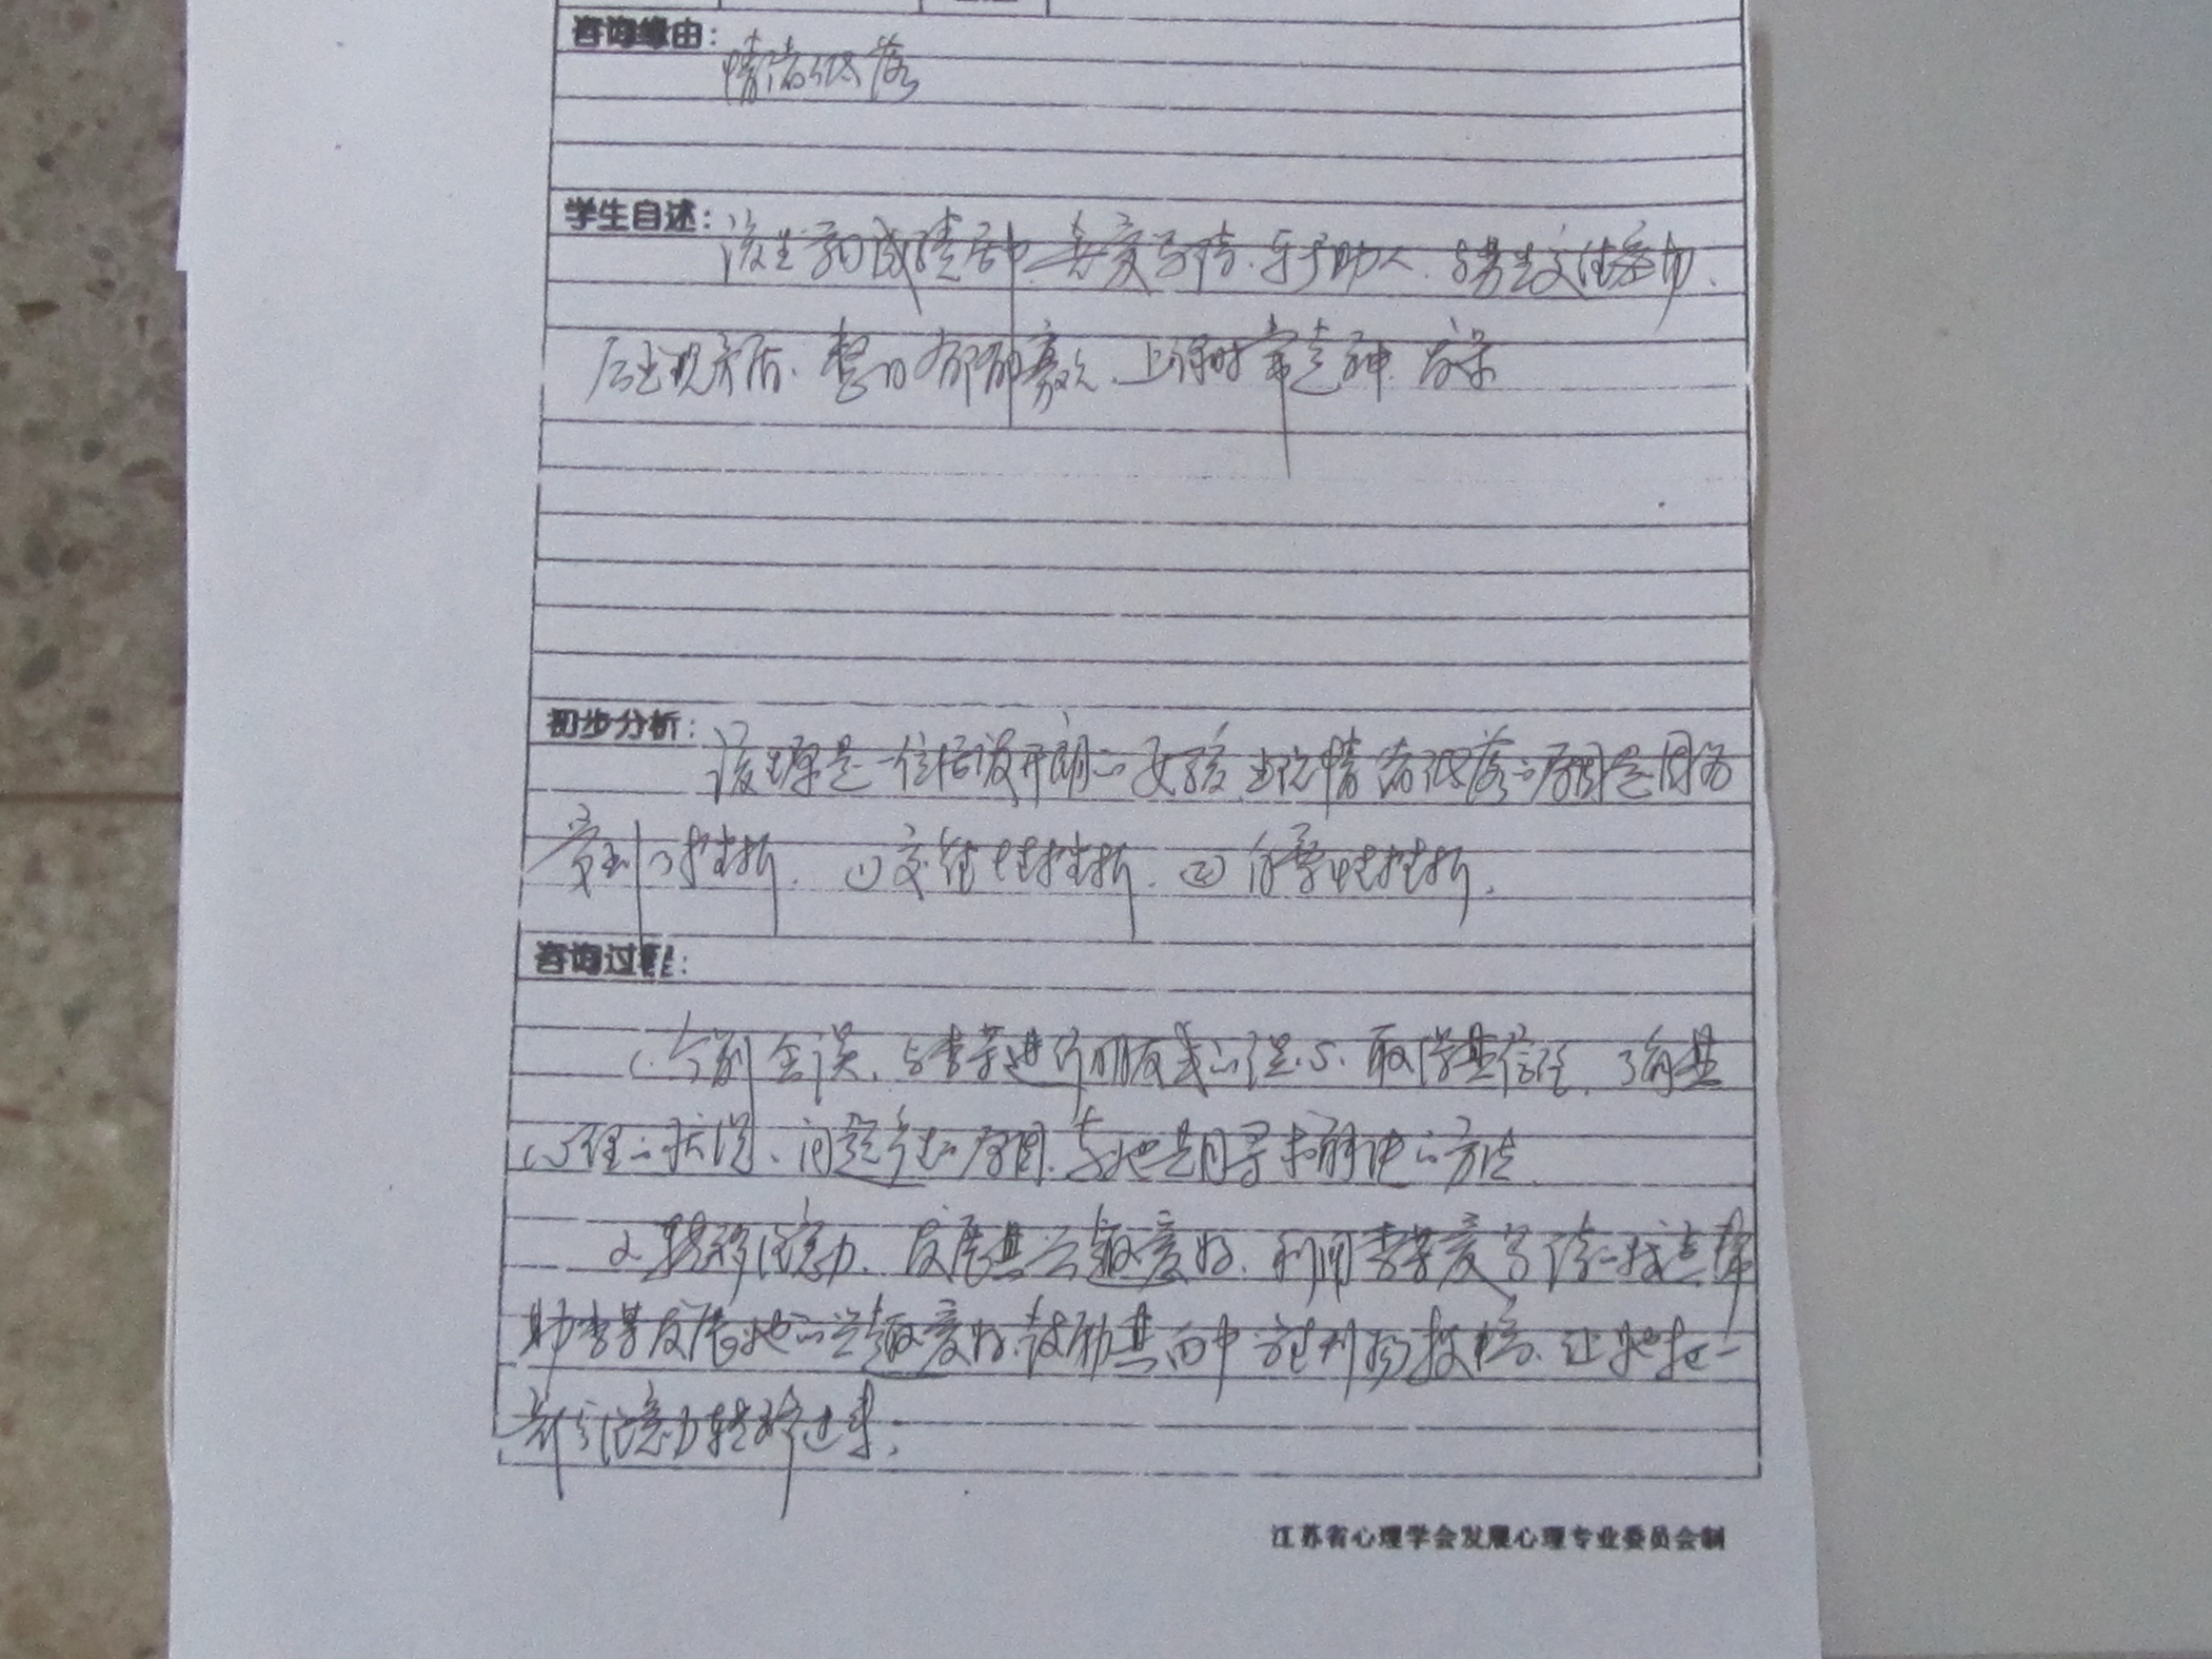 咨询缘由：
情绪低落
学生自述：
该生学习成绩居中，喜爱写诗、乐于助人，与男生交往密切，
后出现矛盾，整日郁郁寡欢，上课时常走神、发呆
初步分析：
该生原是一位活泼开朗的女孩，出现情绪低落的原因是因为
受到了挫折。①交往性挫折。②自尊性挫折。
咨询过程：
1. 个别会谈，与李某进行朋友式的谈心，取得其信任，了解其
心理的状况、问题产生的原因，与她共同寻求解决的方法
2. 转移注意力，发展其兴趣爱好，利用李某爱写诗的特点帮
助李某发展她的兴趣爱好，鼓励其向中 刊物投稿，让她把一
部分注意力转移过来；
江苏省心理学会发展心理专业委员会制